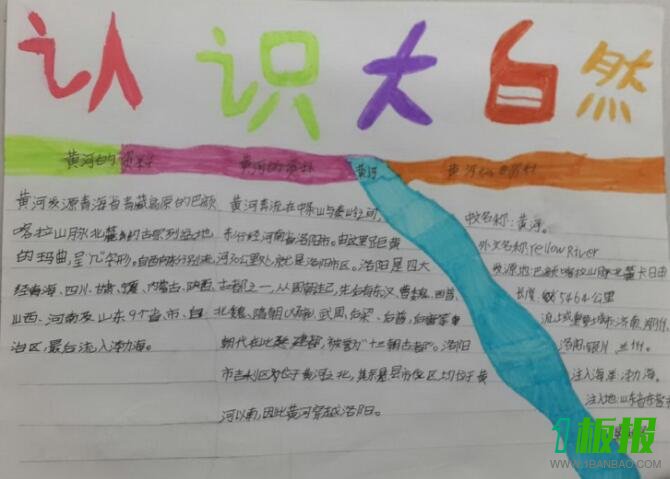 认识大自然
黄河的资料
黄河的资料
黄河
黄河的资料
黄河发源青海省青藏高原的巴颜
喀拉山脉北麓的古宗列盆地
的玛曲,呈"几"字形。自西向东分别流
经青海、四川、甘肃、宁夏、内蒙古、陕西、
山西、河南及山东9个省、市、自
治区,最后流入渤海。
黄河奔流在中条山与娄山之间,
东行经河南省洛阳市。由这里距黄
河30公里处就是洛阳市区。洛阳是四大
古都之一,从周朝起,先后有东汉、曹魏、西晋、
北魏、隋朝、武周、后梁、后唐、后晋等
朝代在此建都,被誉为"十三朝古都"。洛阳
市吉利区均位于黄河之北,其余县市
河以南,因此黄河穿越洛阳。
中文名称:黄河。
外文名称:Yellow River
发源地:巴颜喀拉山脉北麓卡日曲
长度:5464公里
流域城市:济南、郑州、
洛阳、银川、兰州。
注入海洋:渤海。
注入地:山东省东营市
1板报
WWW.1BANBAO.COM